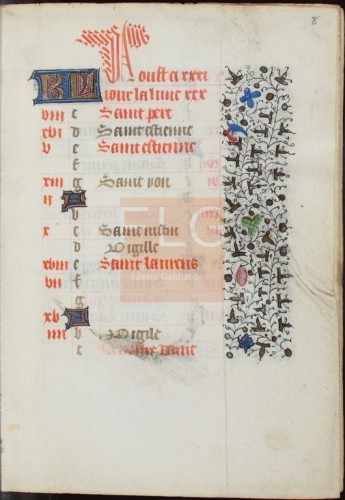 8
Aoust a xxxi
iour la lune xxx
viii c Saint pere
xvi d Saint estienne
v e Saint estienne
f
xiii g Saint yon
ii A
b
x c
d Vigille
xviii e Saint laurens
vii f
g
xv A
iiii b Vigile
c